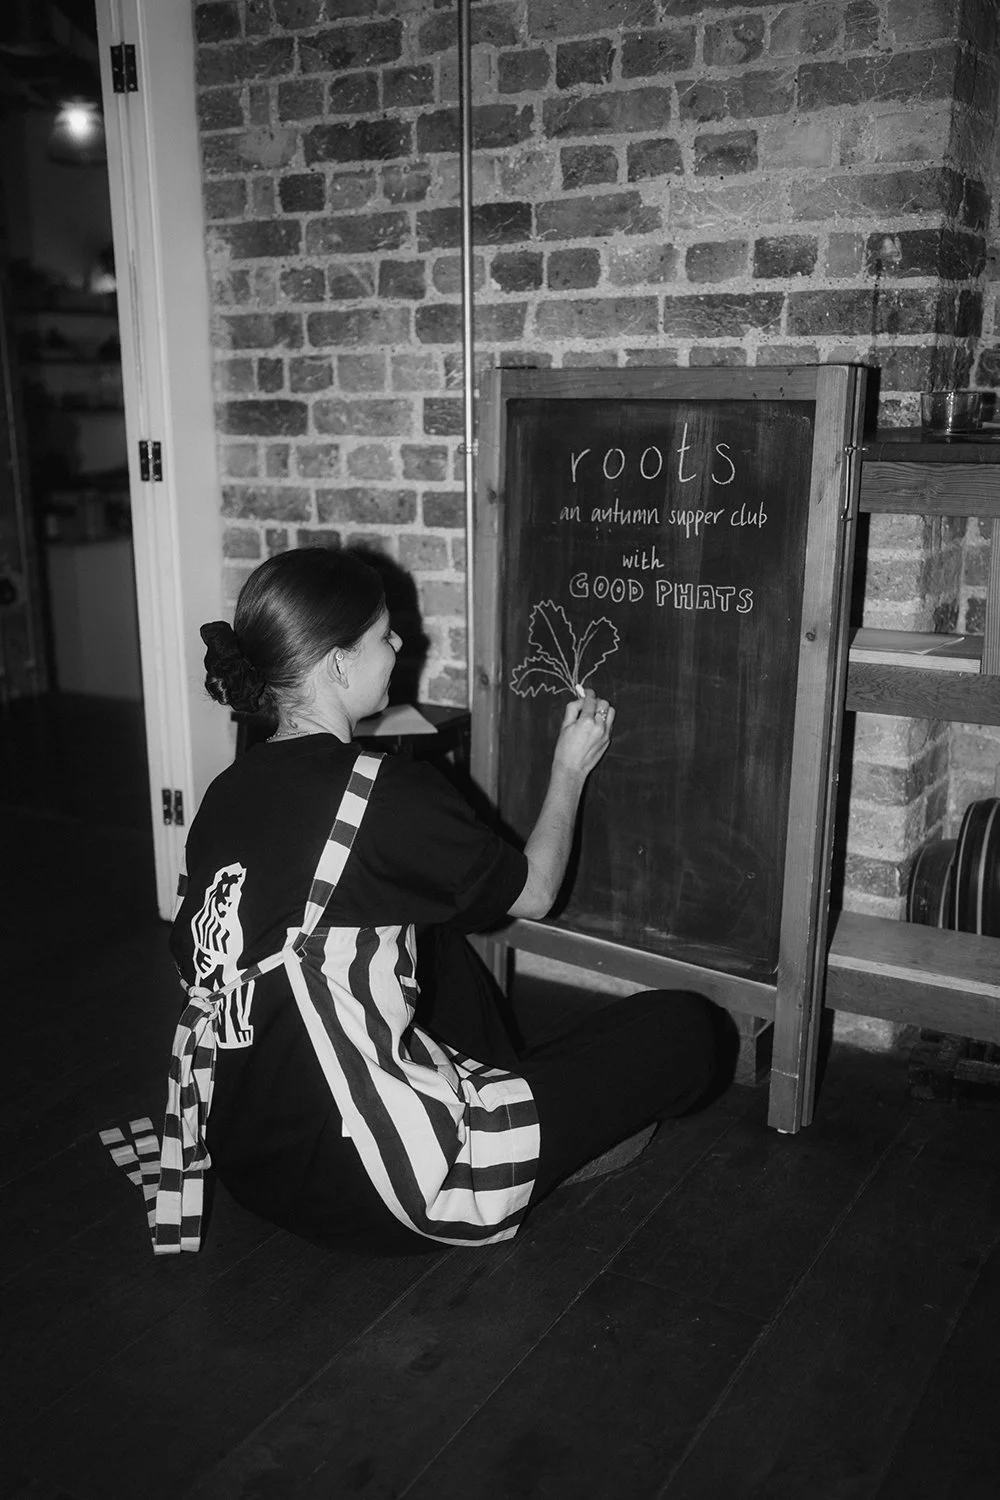 roots
an autumn supper club
with
GOOD PHATS